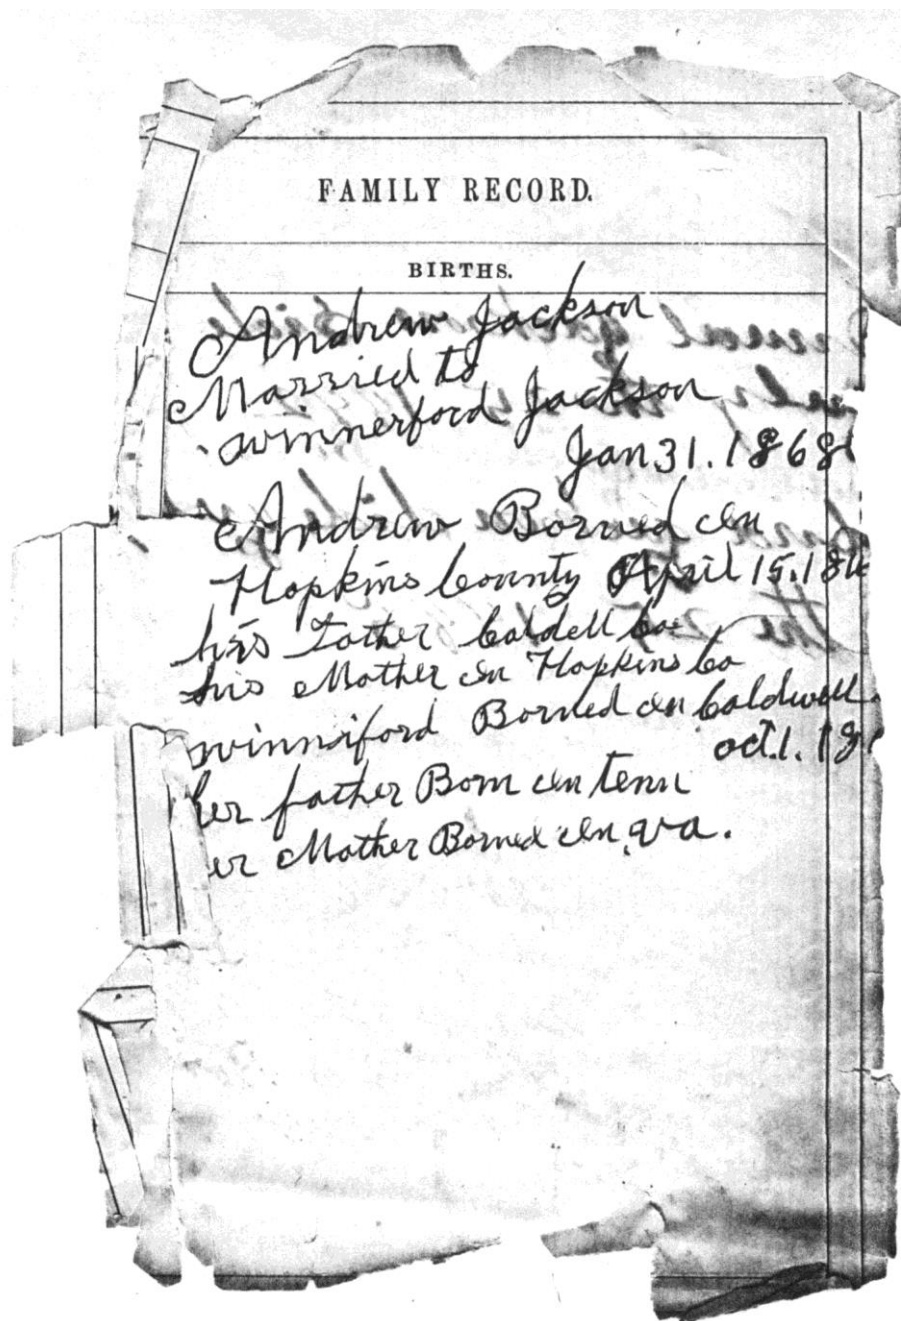 FAMILY RECORD.
BIRTHS.
Andrew Jackson
Married to
winnerford Jackson
Jan 31. 1868
Andrew Borned in
Hopkins County April 15. 184
his Father Caldell Co
his Mother in Hopkins Co
winniford Borned in Caldwell
oct. 1. 18
her father Born in tenn
er Mother Borned in va.